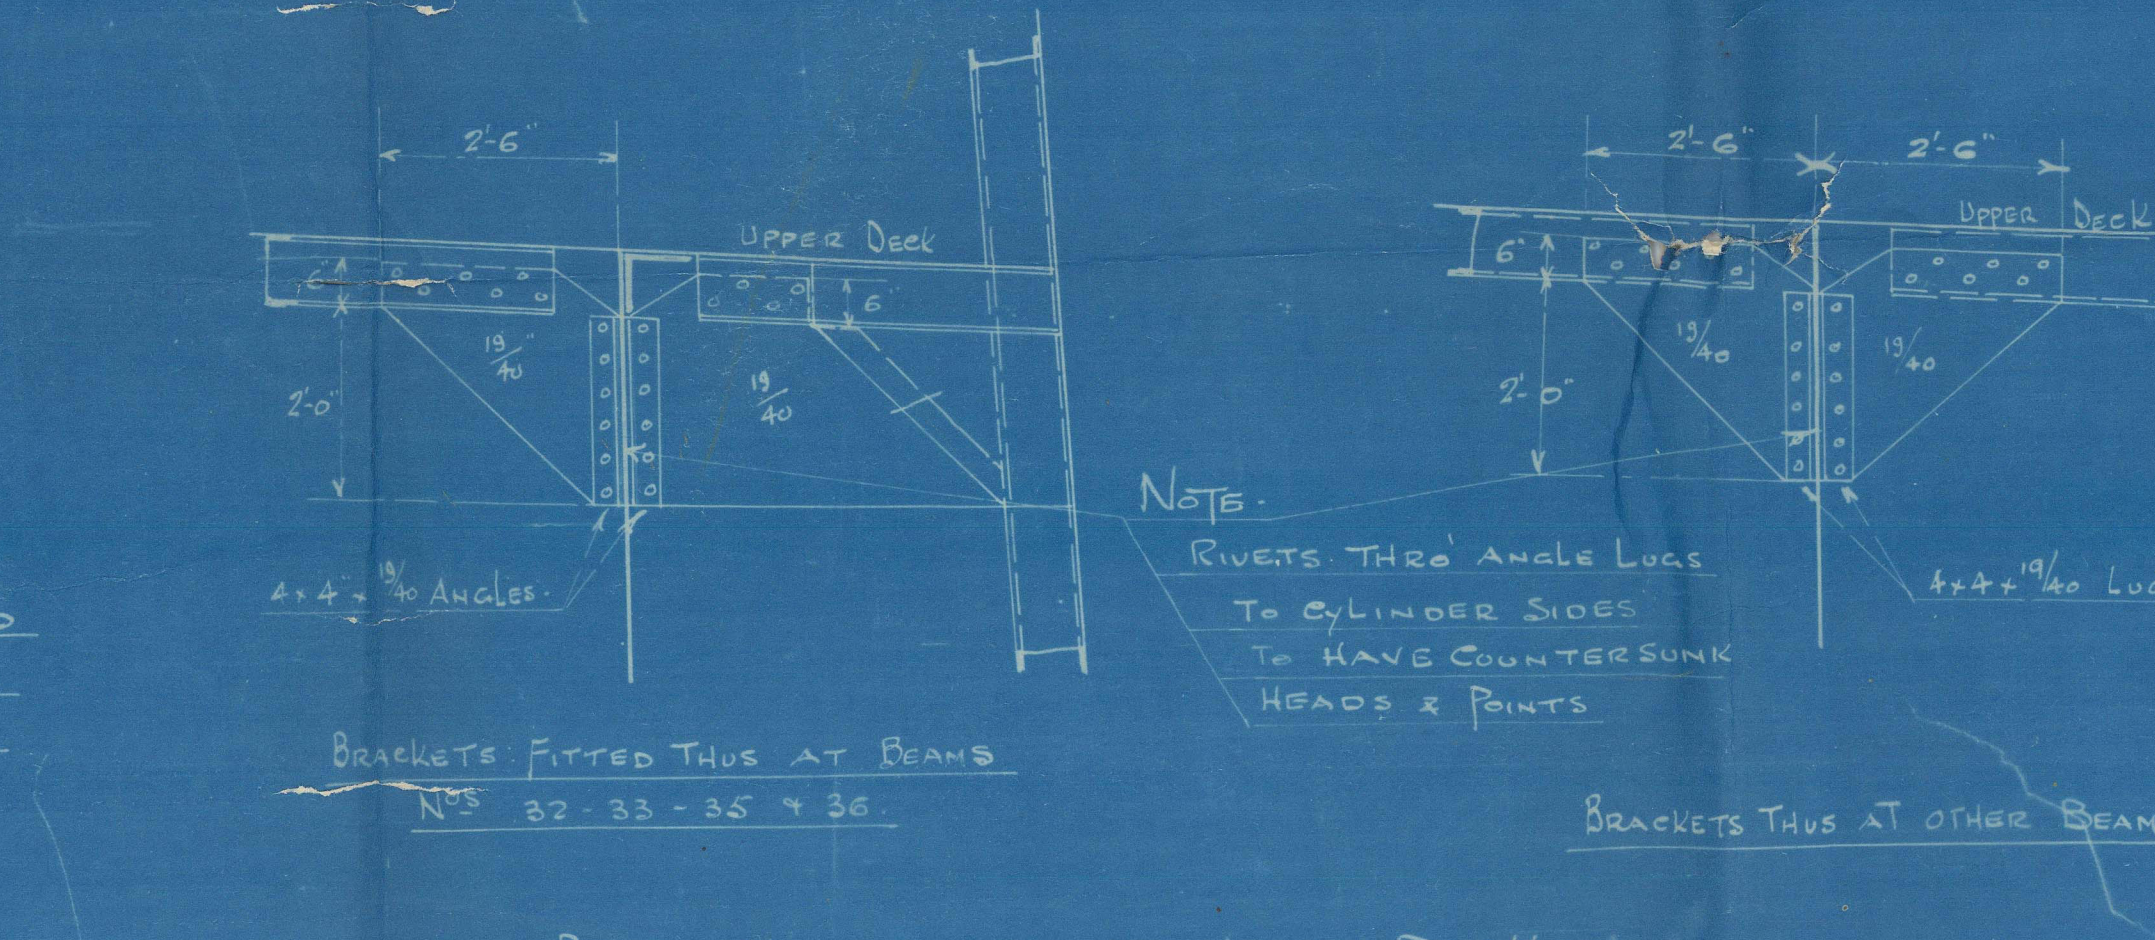 2'-6"
UPPER DECK
6"
6"
19/40"
19/40
2'-0"
4 x 4" x 19/40 ANGLES.
BRACKETS FITTED THUS AT BEAMS
Nos 32 - 33 - 35 & 36.
NOTE.
RIVETS. THRO' ANGLE LUGS
TO CYLINDER SIDES
TO HAVE COUNTERSUNK
HEADS & POINTS
2'-6" 2'-6"
UPPER DECK
6"
19/40
19/40
2'-0"
4 x 4 x 19/40
BRACKETS THUS AT OTHER